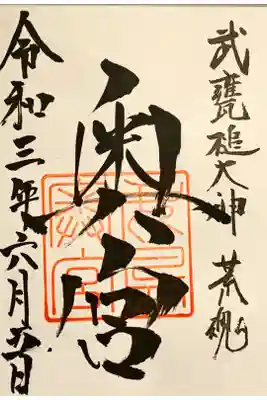 武甕槌大神 荒魂
奥宮
令和三年六月五日